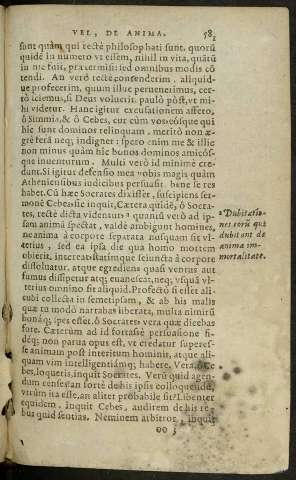 VEL, DE ANIMA. 58;
sunt quàm qui rectè philosophati sunt. quorũ
quidẽ in numero vt eſſem, nihil in vita, quãtũ
in me fuit, prætermiſi: ſed omnibus modis cõ
tendi. An verò rectè contenderim. aliquid-
que profecerim, quum illuc peruenerimus, cer-
tò ſciemus, ſi Deus voluerit. paulò pòſt, vt mi-
hi videtur. Hanc igitur excuſationem aſſero,
ô Simmia, & ô Cebes, cur cùm vos, eôſque qui
hîc ſunt dominos relinquam. meritò non æ-
grè ferã neq; indigner: ſpero enim me & illic
non minus quàm hîc bonos dominos amicóſ-
que inuenturum. Multi verò id minimè cre-
dunt. Si igitur defenſio mea vobis magis quàm
Athenienſibus iudicibus perſuaſit. bene ſe res
habet. Cũ hæc Socrates dixiſſet, ſuſcipiens ſer-
monẽ Cebes: ſic inquit, Cætera quidẽ, ô Socra-
tes, rectè dicta videntur: quantũ verò ad ip-
ſam animã ſpectat, valdè ambigunt homines,
ne anima à corpore ſeparata nuſquam ſit vl-
terius, ſed ea ipſa die qua homo mortem
obierit, intereat: ſtatimque ſeiuncta à corpore
diſſoluatur. atque egrediens quaſi ventus aut
fumus diſſipetur atq; euaneſcat, neq; vſquã vl-
terius omnino ſit aliquid. Profectò ſi eſſet ali-
cubi collecta in ſemetipſam, & ab his malis
quæ tu modò narrabas liberata, multa nimirũ
bonáq; ſpes eſſet. ô Socrates: vera quæ dicebas
fore. Cæterum ad id fortaſſe perſuaſione fi-
déq; non parua opus eſt, vt credatur ſupereſ-
ſe animam poſt interitum hominis, atque ali-
quam vim intelligentiámq; habere. Vera, ô Ce
bes, loqueris, inquit Socrates. Verũ quid agen-
dum cenſes: an fortè de his ipſis colloquẽdũ,
vtrùm ita eſſe, an aliter probabile ſit? Libenter
equidem. inquit Cebes, auditem de his re-
bus quid ſentias. Neminem arbitror, inquit
Dubitatio-
nes eorũ qui
dubitant de
anima im-
mortalitate.
oo